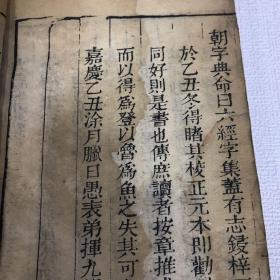 朝字典命曰六經字集蓋有志鋟梓
於乙丑冬得睹其校正元本即勸
同好則是書也傳庶讀者按章推
而以得為登以魯為魚之失其可
嘉慶乙丑涂月臘日愚表弟揮九